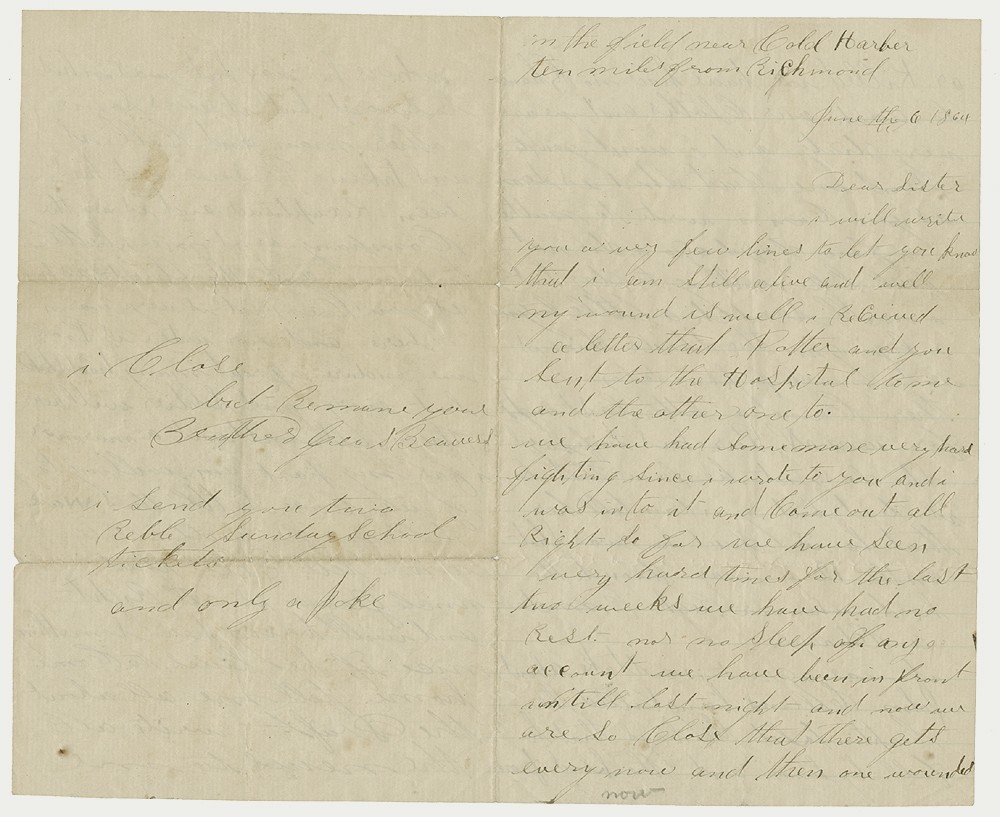 in the field near Cold Harber
ten miles from Richmond
June the 6 1864
Dear Sister
i will write
you a very few lines to let you know
that i am still alive and well
my wound is well i Recieved
a letter that Potter and you
sent to the Hospital to me
and the other one to.
we have had some more very hard
fighting since i wrote to you and i
was in to it and Come out all
Right so far we have seen
very hard times for the last
two weeks we have had no
Rest nor no sleep of any
account we have been in front
untill last night and now we
are so Close that there gets
every now and then one wounded
now
i Close
but Remane your
Brother
i send you two
Rebble Sunday School
tickets
and only a Joke